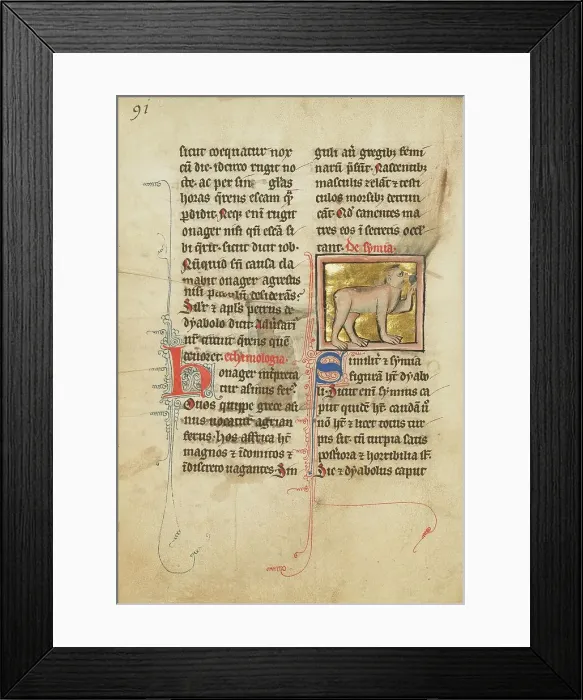 91
sicut coequatur nox
cū die· idcirco rugit no
cte· ac per sin glās
horas q̄rens escam q̄
ꝑdidit· Neq; enī rugit
onager nisi qn̄ escā si
bi q̄rit· sicut dicit iob·
Nūquid sn̄ causa cla
mabit onager agrestis
nisi desiderās·
apl's petrus de
dyabolo dicit·
nr̄ circuit q̄rens quē
deuoret· ethimologia·
honager īṗreta
tur asinus fer
Onos quippe grece asi
nus uocatur agrian
ferus· hos affrica ht̄
magnos ⁊ īdomitos ⁊
īdiscreto uagantes· Sin
guli aū gregib; femi
narū p̄sūt· Nascentib;
masculis ⁊elāt ⁊ testi
culos morsib; detrun
cāt· canentes ma
tres eos ī secretis occl
tant· De symia·
Similit̄ ⁊ symia
figurā ht̄ dyabo
li· Dicut enī symius ca
put quidē ht̄· caudā ū
nō ht̄ ⁊ licet totus tur
pis sit· tn̄ turpia satis
postiora ⁊ horribilia
Sic ⁊ dyabolus caput